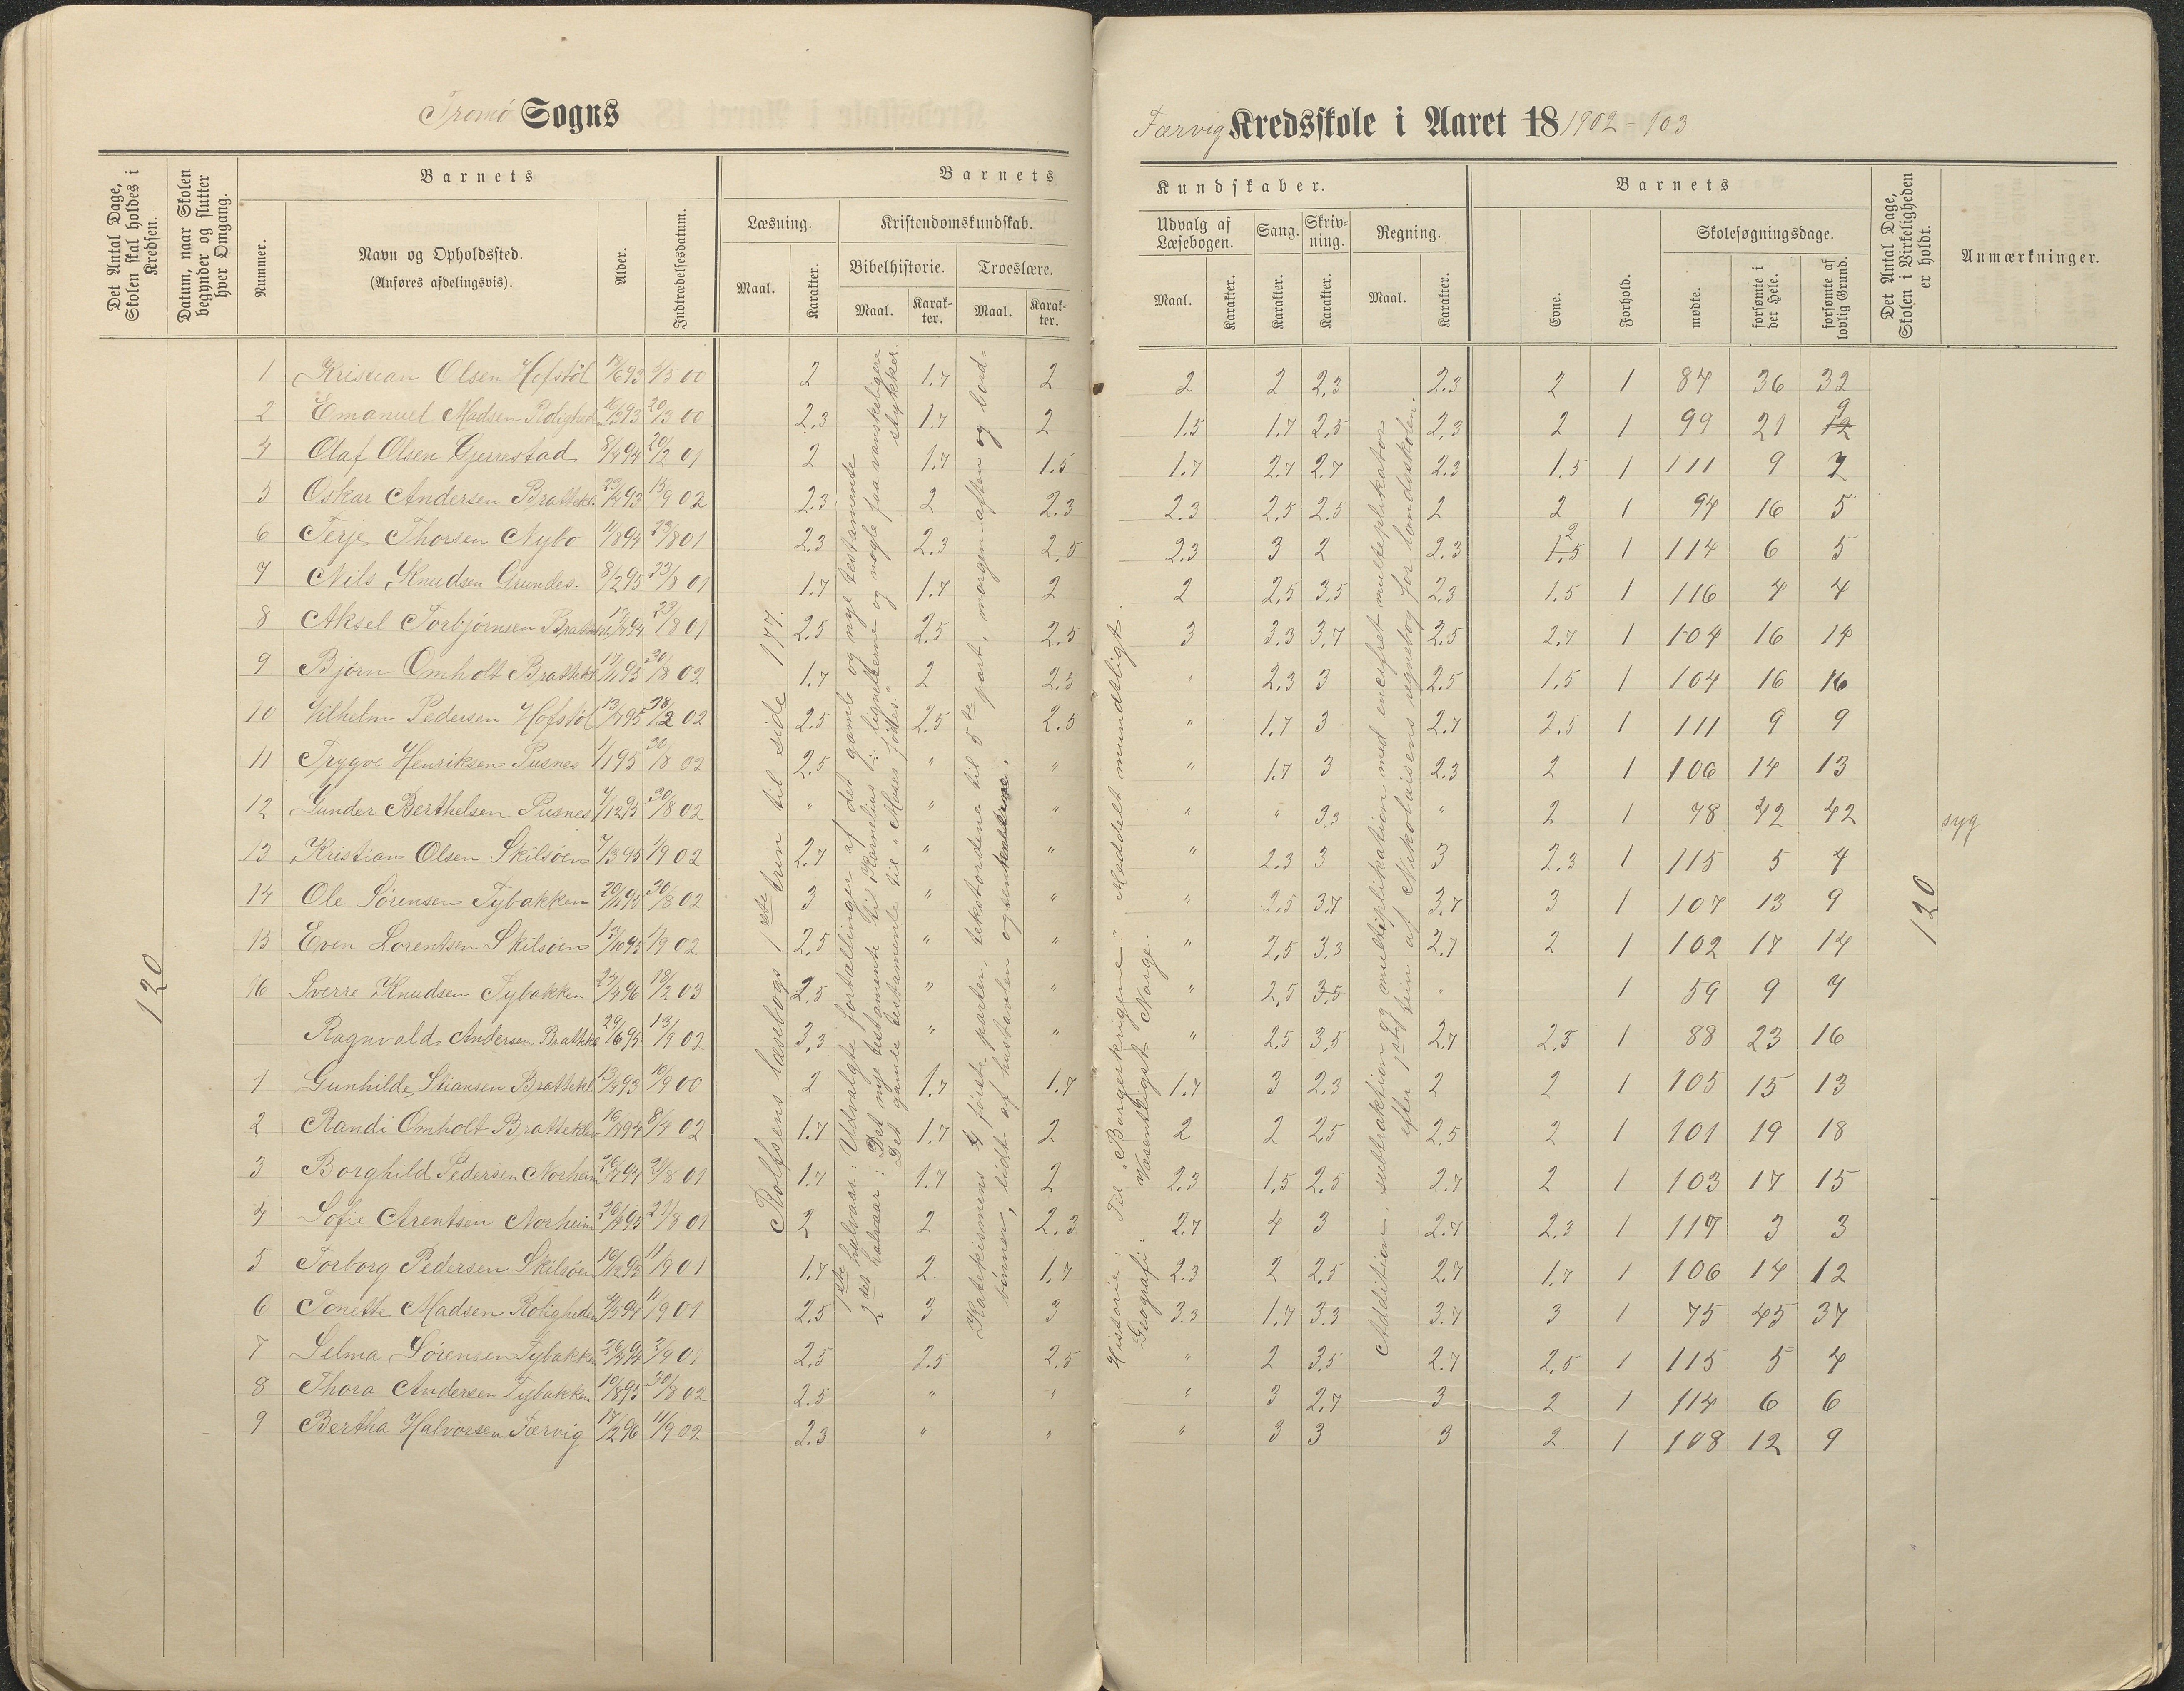 Tromø Sogns
Færvig Kredsskole i Aaret 18 1902-103
Det Antal Dage, Skolen skal holdes i Kredsen.
Datum, naar Skolen begynder og slutter hver Omgang.
Barnets
Nummer.
Navn og Opholdssted.
(Anføres afdelingsvis).
Alder.
Indtrædelsesdatum.
Barnets
Læsning.
Maal.
Karakter.
Kristendomskundskab.
Bibelhistorie.
Maal.
Karakter.
Troeslære.
Maal.
Karakter.
Kundskaber.
Udvalg af Læsebogen.
Maal.
Karakter.
Sang.
Karakter.
Skrivning.
Karakter.
Regning.
Maal.
Karakter.
Barnets
Evne.
Forhold.
Skolesøgningsdage.
mødte.
forsømte i det Hele.
forsømte af lovlig Grund.
Det Antal Dage, Skolen i Virkeligheden er holdt.
Anmærkninger.
1 Kristian Olsen Hofstøl 18/6 93 5/5 00 2 1.7 2 2 2 2,3 2.3 2 1 84 36 32
2 Emanuel Madsen 93 20/3 00 2.3 1.7 2 1.5 1.7 2.5 2.3 2 1 99 21 12 9
4 Olaf Olsen Gjerrestad 8/4 94 20/2 01 2 1.7 1.5 1.7 2.7 2.7 2.3 1.5 1 111 9 7
5 Oskar Andersen Brattekl. 93 15/9 02 2.3 2 2.3 2.3 2.5 2.5 2 2 1 94 16 5
6 Terje Thorsen Nybo 11/8 94 23/8 01 2.3 2.3 2.5 2.3 3 2 2.3 1.5 2 1 114 6 5
7 Nils Knudsen Grundes. 8/2 95 23/8 01 1.7 1.7 2 2 2,5 3.5 2.3 1.5 1 116 4 4
8 Aksel Torbjørnsen 94 23/8 01 2.5 2.5 2.5 3 3.3 3.7 2.5 2.7 1 104 16 14
9 Bjørn Omholt Brattekl 17/11 95 30/8 02 1.7 2 2.5 " 2.3 3 2.5 1.5 1 104 16 16
10 Vilhelm Pedersen Hofstøl 13/7 95 28/2 02 2.5 2.5 2.5 " 1.7 3 2.7 2.5 1 111 9 9
11 Trygve Henriksen Pusnes 1/1 95 30/8 02 2.5 " " " 1.7 3 2.3 2 1 106 14 13
12 Gunder Berthelsen Pusnes 7/12 95 30/8 02 " " " " " 3.3 " 2 1 78 42 42 syg
13 Kristian Olsen Skilsøen 7/3 95 1/9 02 2.7 " " " 2.3 3 3 2.3 1 115 5 4
14 Ole Sørensen Tybakken 20/11 95 30/8 02 3 " " " 2.5 3.7 3.7 3 1 107 13 9
15 Even Lorentsen Skilsøen 13/10 95 1/9 02 2.5 " " " 2,5 3.3 2.7 2 1 102 17 14
16 Sverre Knudsen Tybakken 24/4 96 18/2 03 2.5 " " " 2,5 3.5 " 1 59 9 7
Ragnvald Andersen Brattekl 29/6 95 13/9 02 3,3 " " " 2.5 3.5 2.7 2.3 1 88 23 16
1 Gunhilde Stiansen Brattekl 93 10/9 00 2 1.7 1.7 1.7 3 2.3 2 2 1 105 15 13
2 Randi Omholt Bratteklev 94 8/4 02 1.7 1.7 2 2 2 2.5 2.5 2 1 101 19 18
3 Borghild Pedersen Norheim 94 21/8 01 1.7 1.7 2 2.3 1.5 2.5 2.7 2 1 103 17 15
4 Sofie Arentsen Norheim 95 21/8 01 2 2 2.3 2.7 4 3 2.7 2.3 1 117 3 3
5 Torborg Pedersen Skilsøen 95 11/9 01 1.7 2 1.7 2.3 2 2.5 2.7 1.7 1 106 14 12
6 Tonette Madsen Roligheden 94 11/9 01 2.5 3 3 3.3 1.7 3.3 3.7 3 1 75 45 37
7 Selma Sørensen Tybakken 94 2/9 01 2.5 2.5 2.5 " 2 3.5 2.7 2.5 1 115 5 4
8 Thora Andersen Tybakken 10/8 95 30/8 02 2.5 " " " 3 2.7 3 2 1 114 6 6
9 Bertha Halvorsen Færvig 17/2 96 11/9 02 2.3 " " " 3 3 3 2 1 108 12 9
120
120
Rolfsens læsebogs 1ste trin til side 177.
1ste halvaar: Udvalgte fortællinger af det gamle og nye testamente
2det halvaar: Det nye testamente til Kornelius i: lignelserne og nogle faa vanskeligere stykker.
Det gamle testamente til "Moses fødes"
Katekismens 4 første parter, tekstordene til 5te part, morgen- aften og bordbønner, lidt af hustavlen
Historie: Til "Borgerkrigene". Meddelt mundtligt.
Geografi: Væsentligst Norge.
Addition, subtraktion og multiplikation med encifret multiplikator
efter 1ste trin af Nikolaisens regnebog for landsskolen.